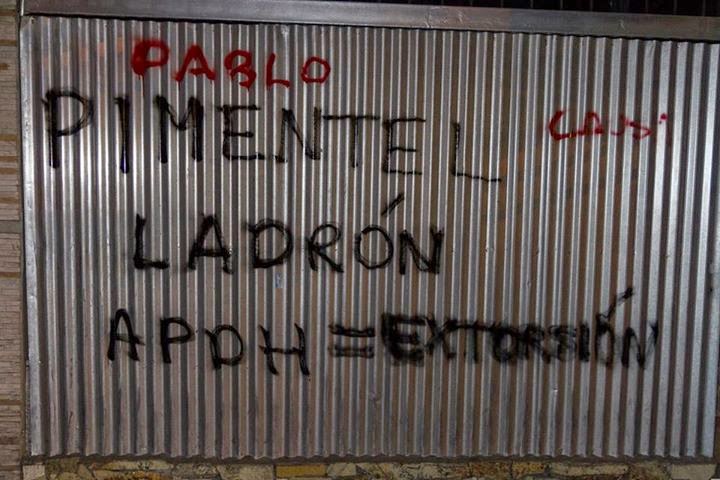 PABLO
PIMENTEL
LADRÓN
APDH = EXTORSIÓN